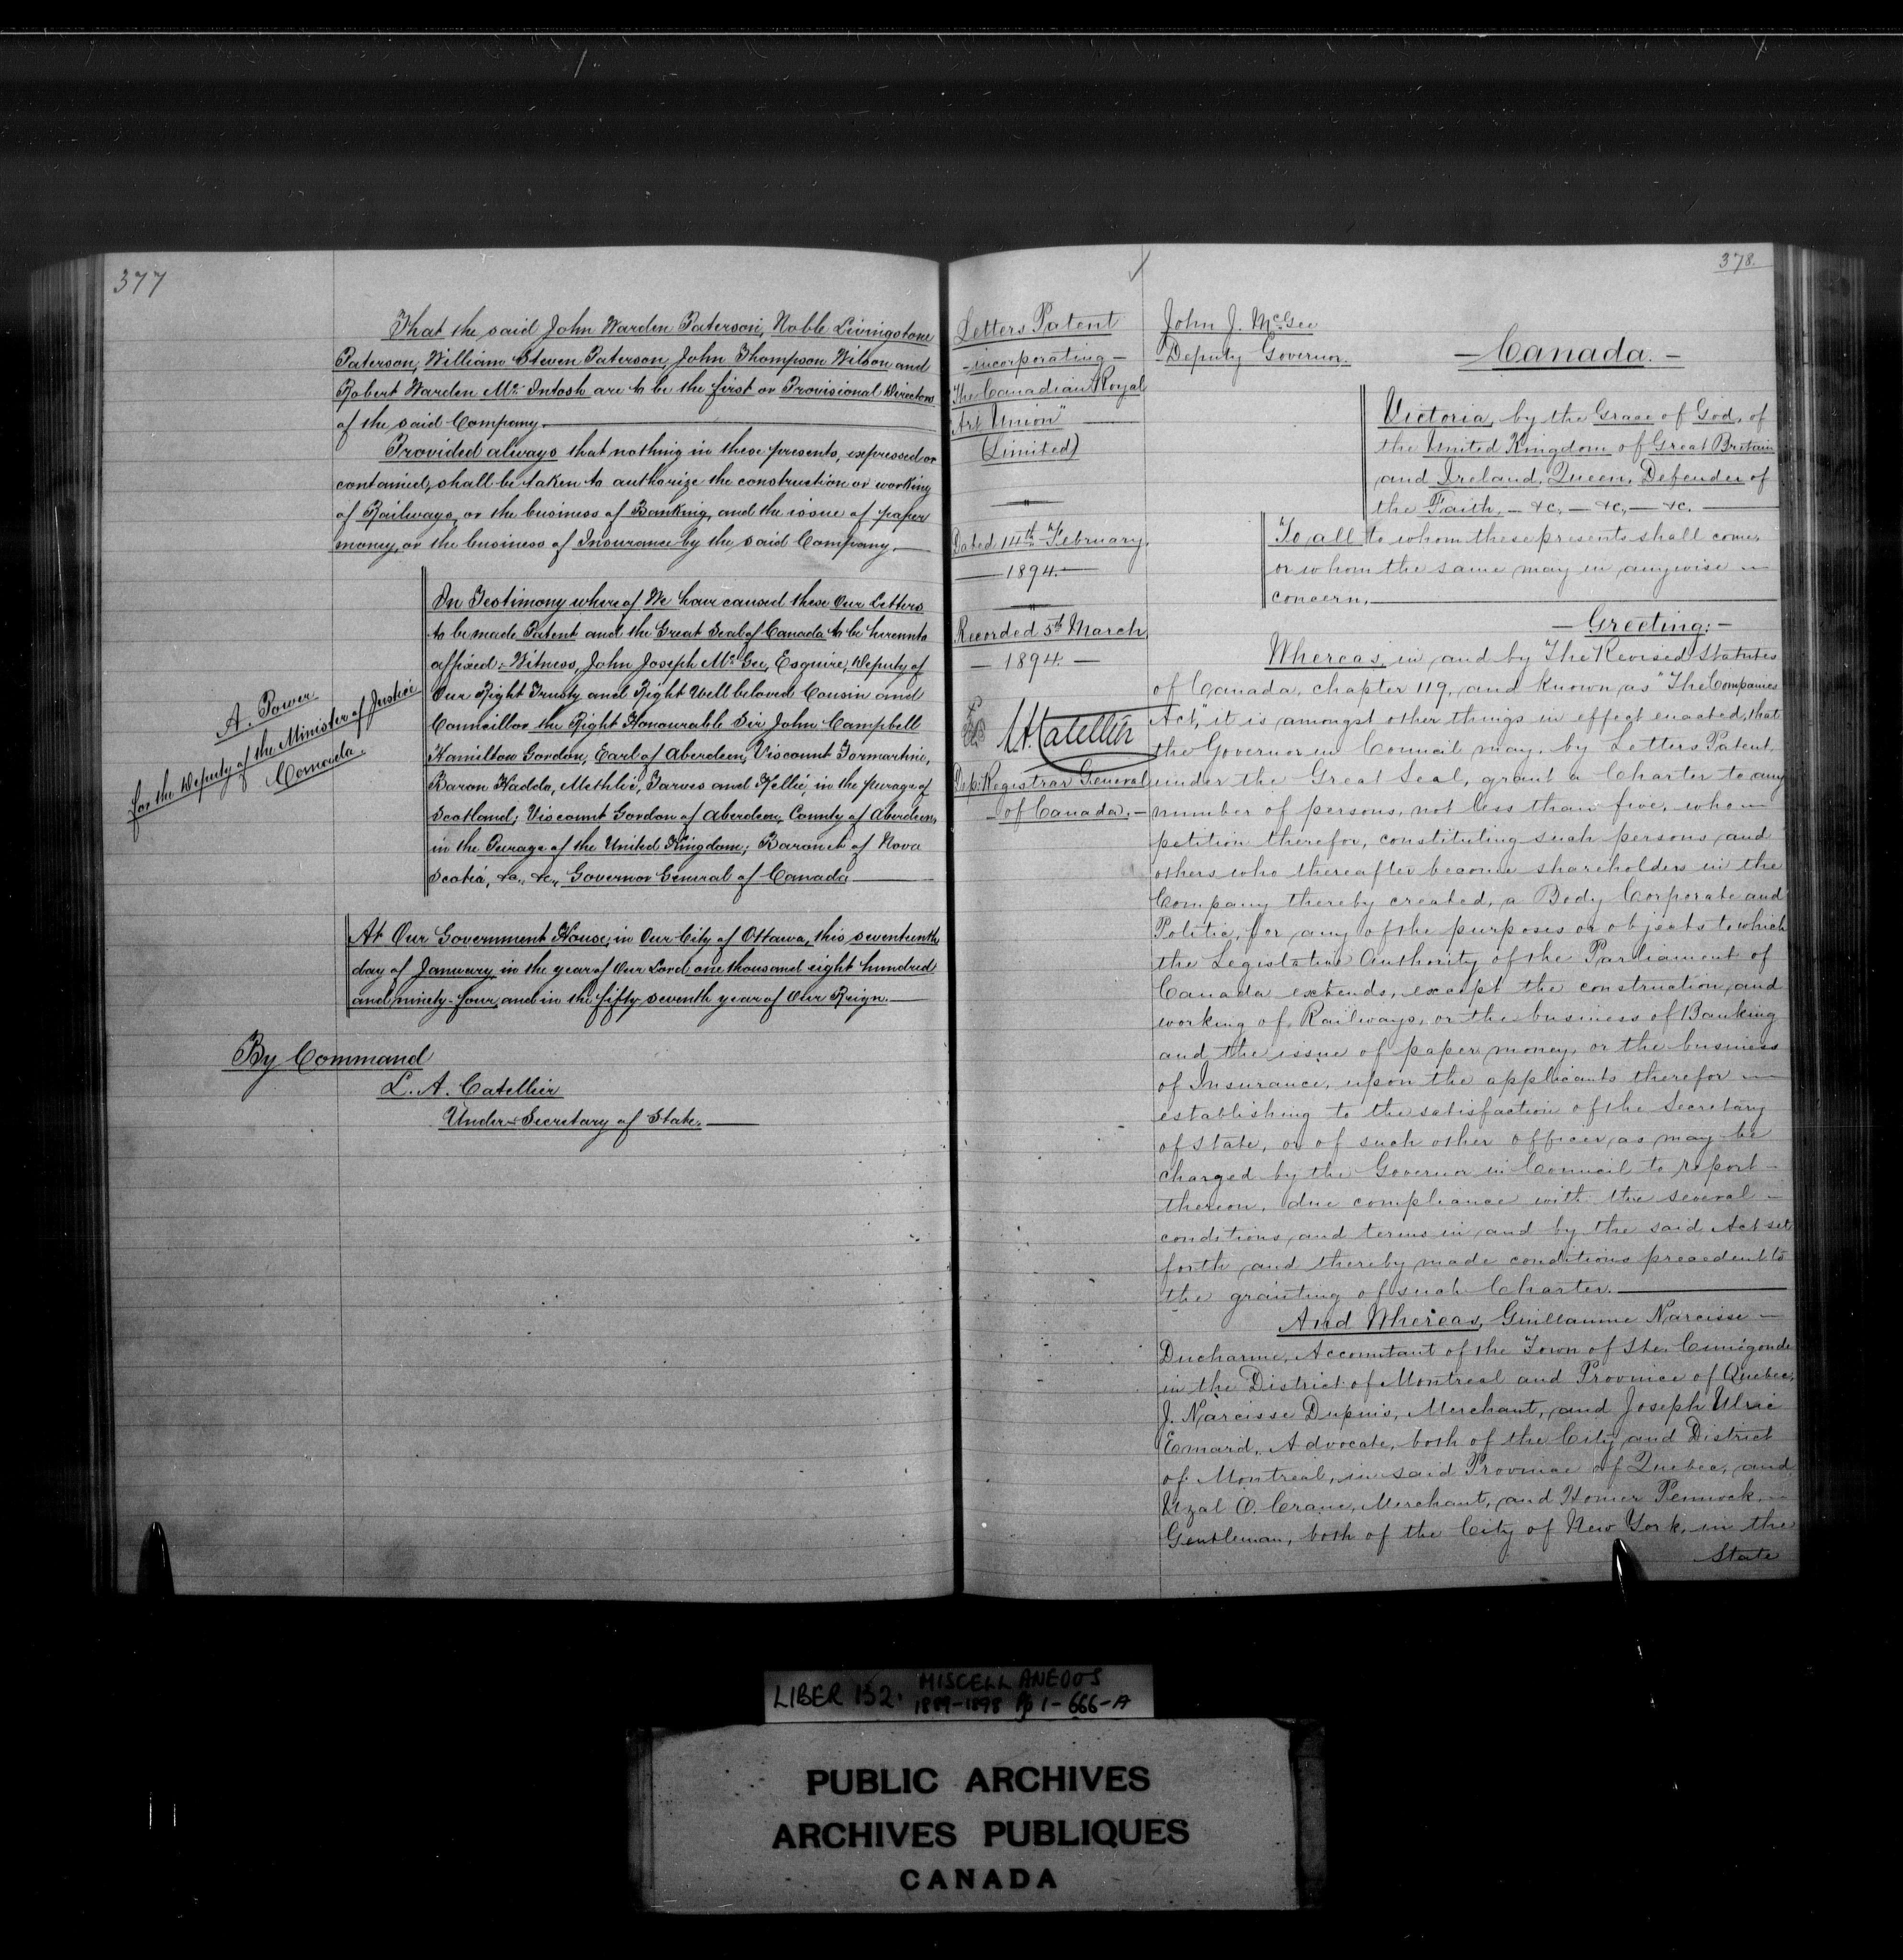 377
That the said John Warden Paterson, Noble Livingstone
Paterson, William Steven Paterson, John Thompson Wilson and
Robert Warden Mc Intosh are to be the first or Provisional Directors
of the said Company.
Provided always that nothing in these presents, expressed or
contained, shall be taken to authorize the construction or working
of Railways, or the business of Banking, and the issue of paper
money, or the business of Insurance by the said Company.
In Testimony whereof We have caused these Our Letters
to be made Patent and the Great Seal of Canada to be hereunto
affixed: Witness, John Joseph McGee, Esquire, Deputy of
Our Right Trusty and Right Well beloved Cousin and
Councillor the Right Honourable Sir John Campbell
Hamilton Gordon, Earl of Aberdeen, Viscount Formartine,
Baron Haddo, Methlic, Tarves and Kellie, in the peerage of
Scotland; Viscount Gordon of Aberdeen, County of Aberdeen,
in the Peerage of the United Kingdom; Baronet of Nova
Scotia, &c., &c., Governor General of Canada
A. Power
for the Deputy of the Minister of Justice
Canada.
At Our Government House, in Our City of Ottawa, this seventeenth
day of January in the year of Our Lord one thousand eight hundred
and ninety-four, and in the fifty-seventh year of Our Reign.
By Command
L. A. Catellier
Under-Secretary of State.
378.
Letters Patent
- incorporating -
"The Canadian Royal
Art Union"
(Limited)
Dated 14th February,
1894.
Recorded 5th March,
- 1894. -
LACatellier
Dep: Registrar General
- of Canada. -
John J. McGee
Deputy Governor.
- Canada. -
Victoria, by the Grace of God, of
the United Kingdom of Great Britain
and Ireland, Queen, Defender of
the Faith, - &c, - &c, - &c.
To all to whom these presents shall come,
or whom the same may in anywise -
concern,
- Greeting: -
Whereas, in and by The Revised Statutes
of Canada, chapter 119, and known as "The Companies
Act," it is amongst other things in effect enacted, that
the Governor in Council may, by Letters Patent,
under the Great Seal, grant a Charter to any
number of persons, not less than five, who -
petition therefor, constituting such persons, and
others who thereafter become shareholders in the
Company thereby created, a Body Corporate and
Politic, for any of the purposes or objects to which
the Legislative Authority of the Parliament of
Canada extends, except the construction and
working of Railways, or the business of Banking
and the issue of paper money, or the business
of Insurance, upon the applicants therefor -
establishing to the satisfaction of the Secretary
of State, or of such other officer, as may be
charged by the Governor in Council to report -
thereon, due compliance with the several -
conditions, and terms in, and by the said Act set
forth, and thereby made conditions precedent to
the granting of such Charter.
And Whereas, Guillaume Narcisse -
Ducharme, Accountant of the Town of Ste. Cunégonde
in the District of Montreal and Province of Quebec,
J. Narcisse Dupuis, Merchant, and Joseph Ulric
Emard, Advocate, both of the City and District
of Montreal, in said Province of Quebec, and
Uzal O. Crane, Merchant, and Homer Pennock, -
Gentleman, both of the City of New York, in the
State
LIBER 132. MISCELLANEOUS
1889-1898 Pp 1-666-A
PUBLIC ARCHIVES
ARCHIVES PUBLIQUES
CANADA